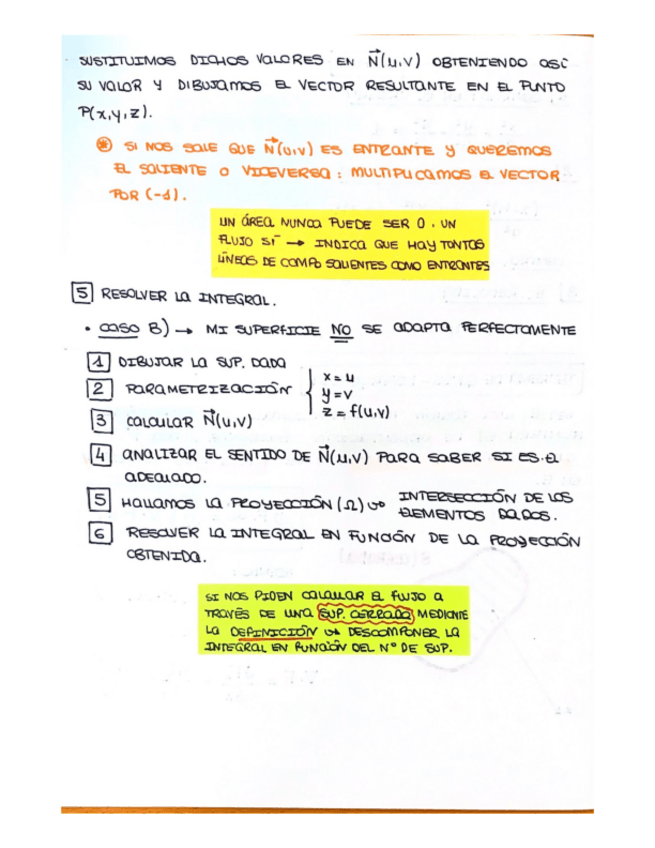 SUSTITUIMOS DICHOS VALORES EN N⃗(u,v) OBTENIENDO ASÍ
SU VALOR Y DIBUJAMOS EL VECTOR RESULTANTE EN EL PUNTO
P(x,y,z).
* SI NOS SALE QUE N⃗(u,v) ES ENTRANTE Y QUEREMOS
EL SALIENTE O VICEVERSA: MULTIPLICAMOS EL VECTOR
POR (-1).
UN ÁREA NUNCA PUEDE SER 0. UN
FLUJO SÍ → INDICA QUE HAY TANTAS
LÍNEAS DE CAMPO SALIENTES COMO ENTRANTES
5 RESOLVER LA INTEGRAL.
• CASO B) → MI SUPERFICIE NO SE ADAPTA PERFECTAMENTE
1 DIBUJAR LA SUP. DADA
2 PARAMETRIZACIÓN { x = u
y = v
z = f(u,v)
3 CALCULAR N⃗(u,v)
4 ANALIZAR EL SENTIDO DE N⃗(u,v) PARA SABER SI ES EL
ADECUADO.
5 HALLAMOS LA PROYECCIÓN (Ω) ↪ INTERSECCIÓN DE LOS
ELEMENTOS DADOS.
6 RESOLVER LA INTEGRAL EN FUNCIÓN DE LA PROYECCIÓN
OBTENIDA.
SI NOS PIDEN CALCULAR EL FLUJO A
TRAVÉS DE UNA SUP. CERRADA MEDIANTE
LA DEFINICIÓN ↪ DESCOMPONER LA
INTEGRAL EN FUNCIÓN DEL Nº DE SUP.